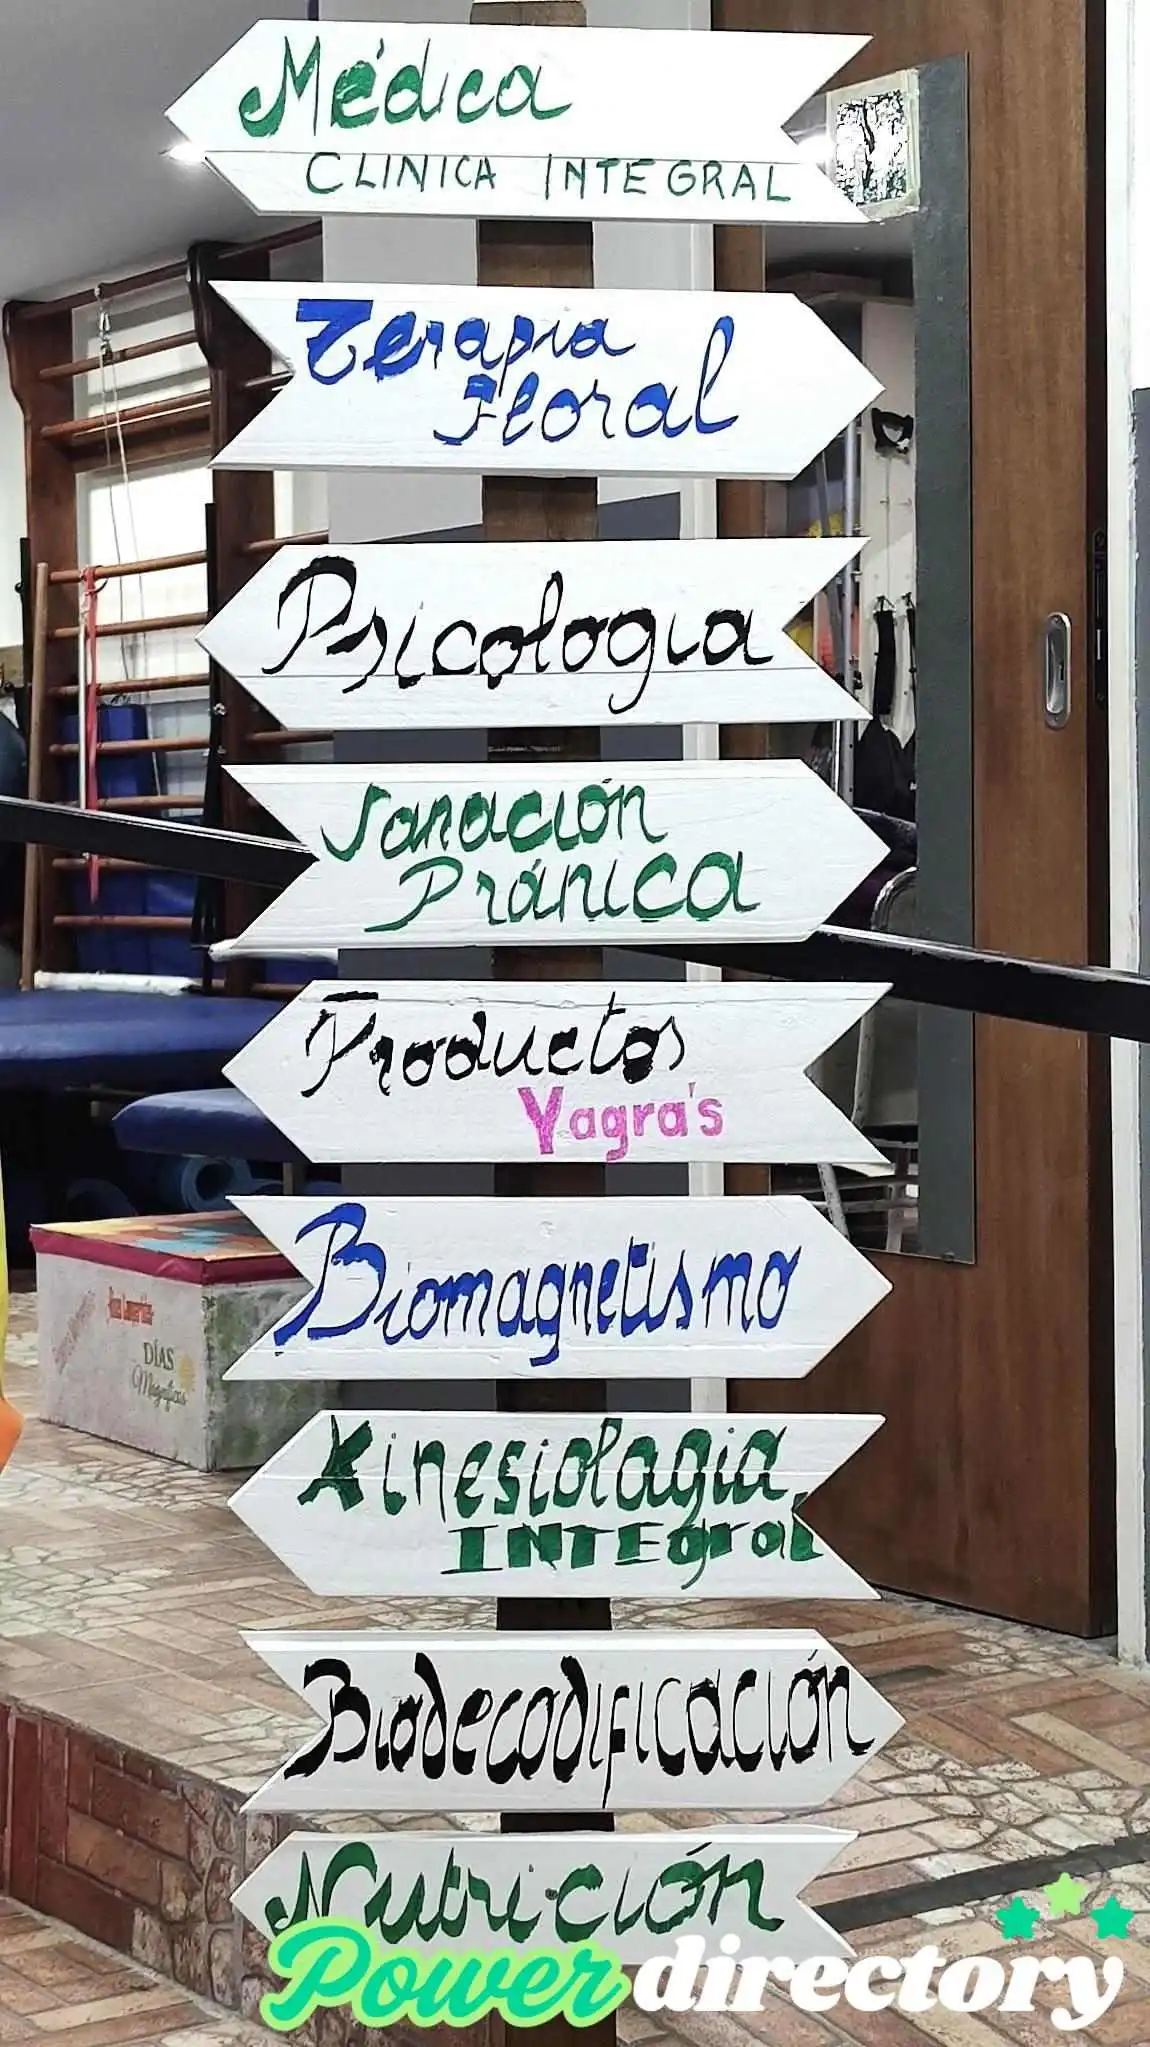 Médica
CLINICA INTEGRAL
Terapia
Floral
Psicologia
Sanación
Pránica
Productos
Yagra's
Biomagnetismo
Kinesiologia
INTEgral
DÍAS
Magníficos
Biodecodificación
Nutrición
Power directory